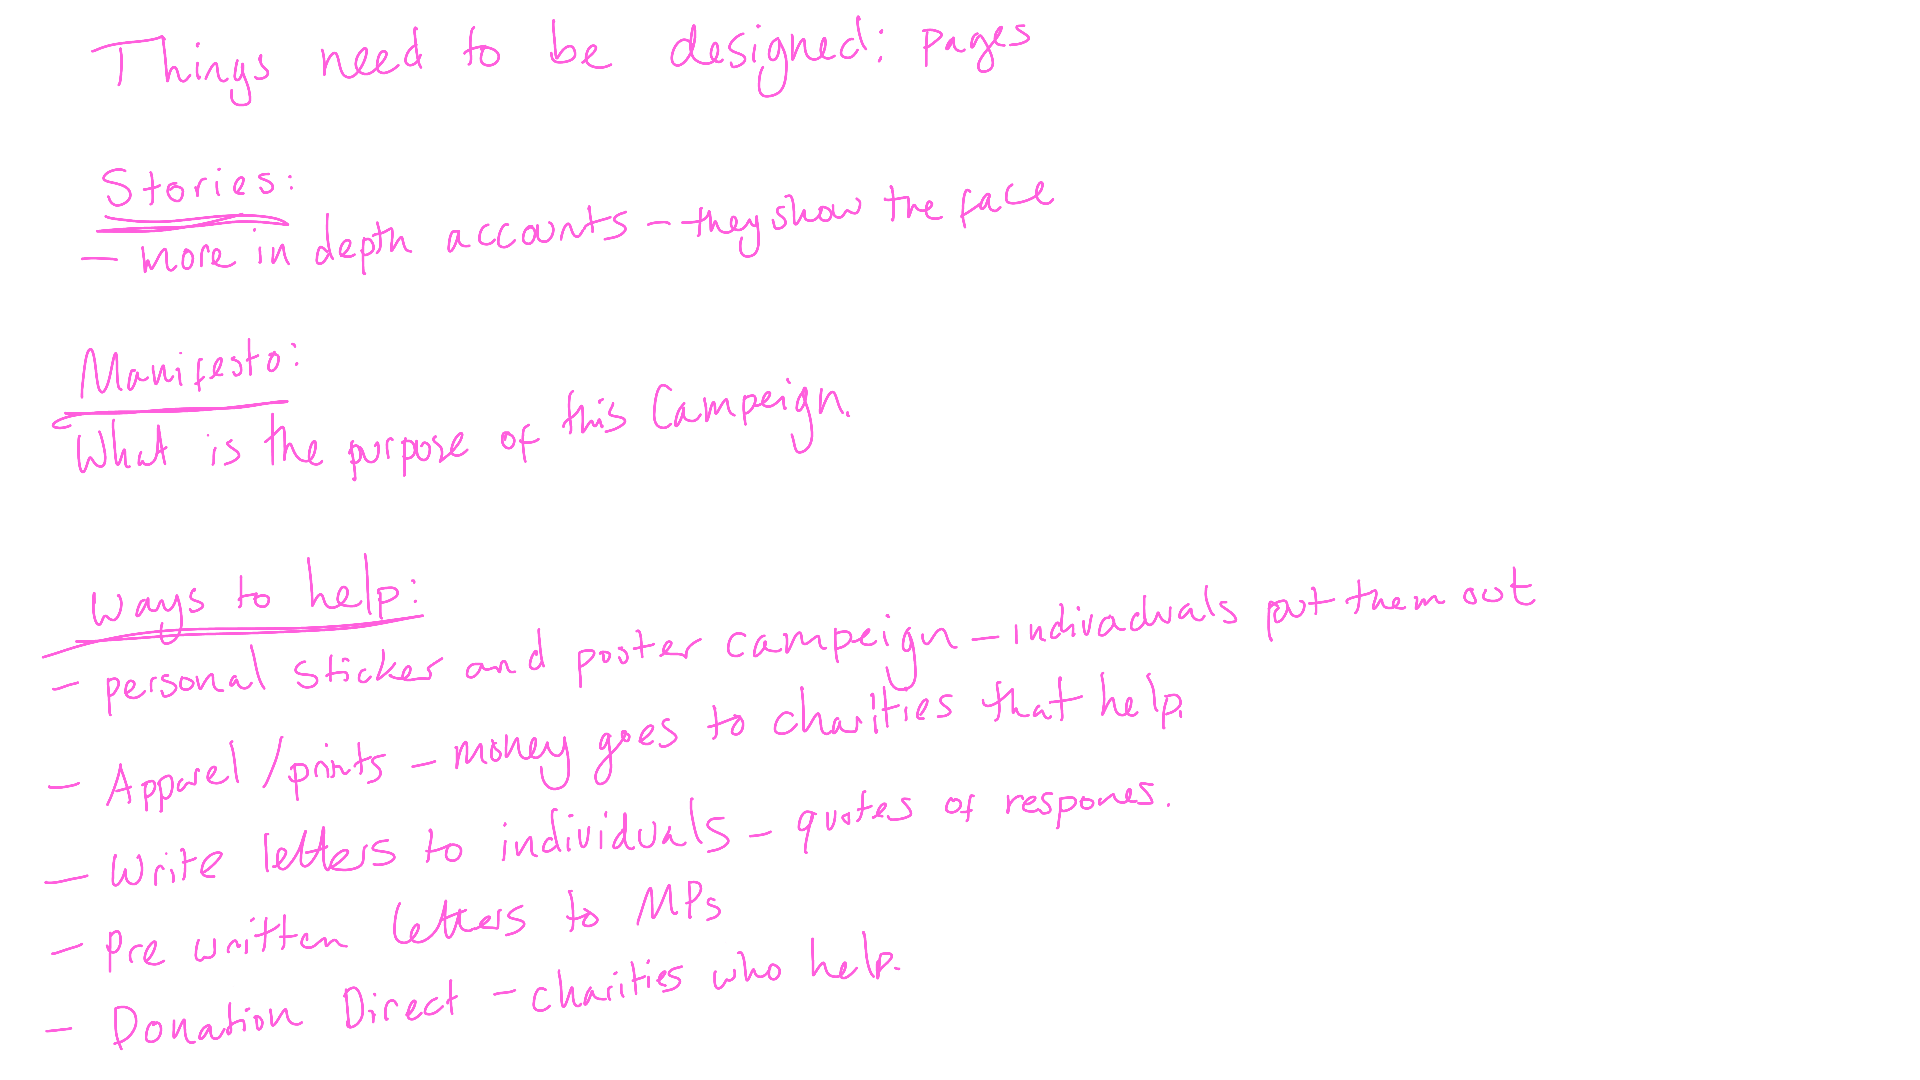 Things need to be designed: pages
Stories:
- more in depth accounts - they show the face
Manifesto:
What is the purpose of this Campeign.
Ways to help:
- personal sticker and poster campeign - indivaduals put them out
- Apparel/prints - money goes to charities that help.
- Write letters to individuals - quotes of respones.
- Pre written letters to MPs
- Donation Direct - charities who help.